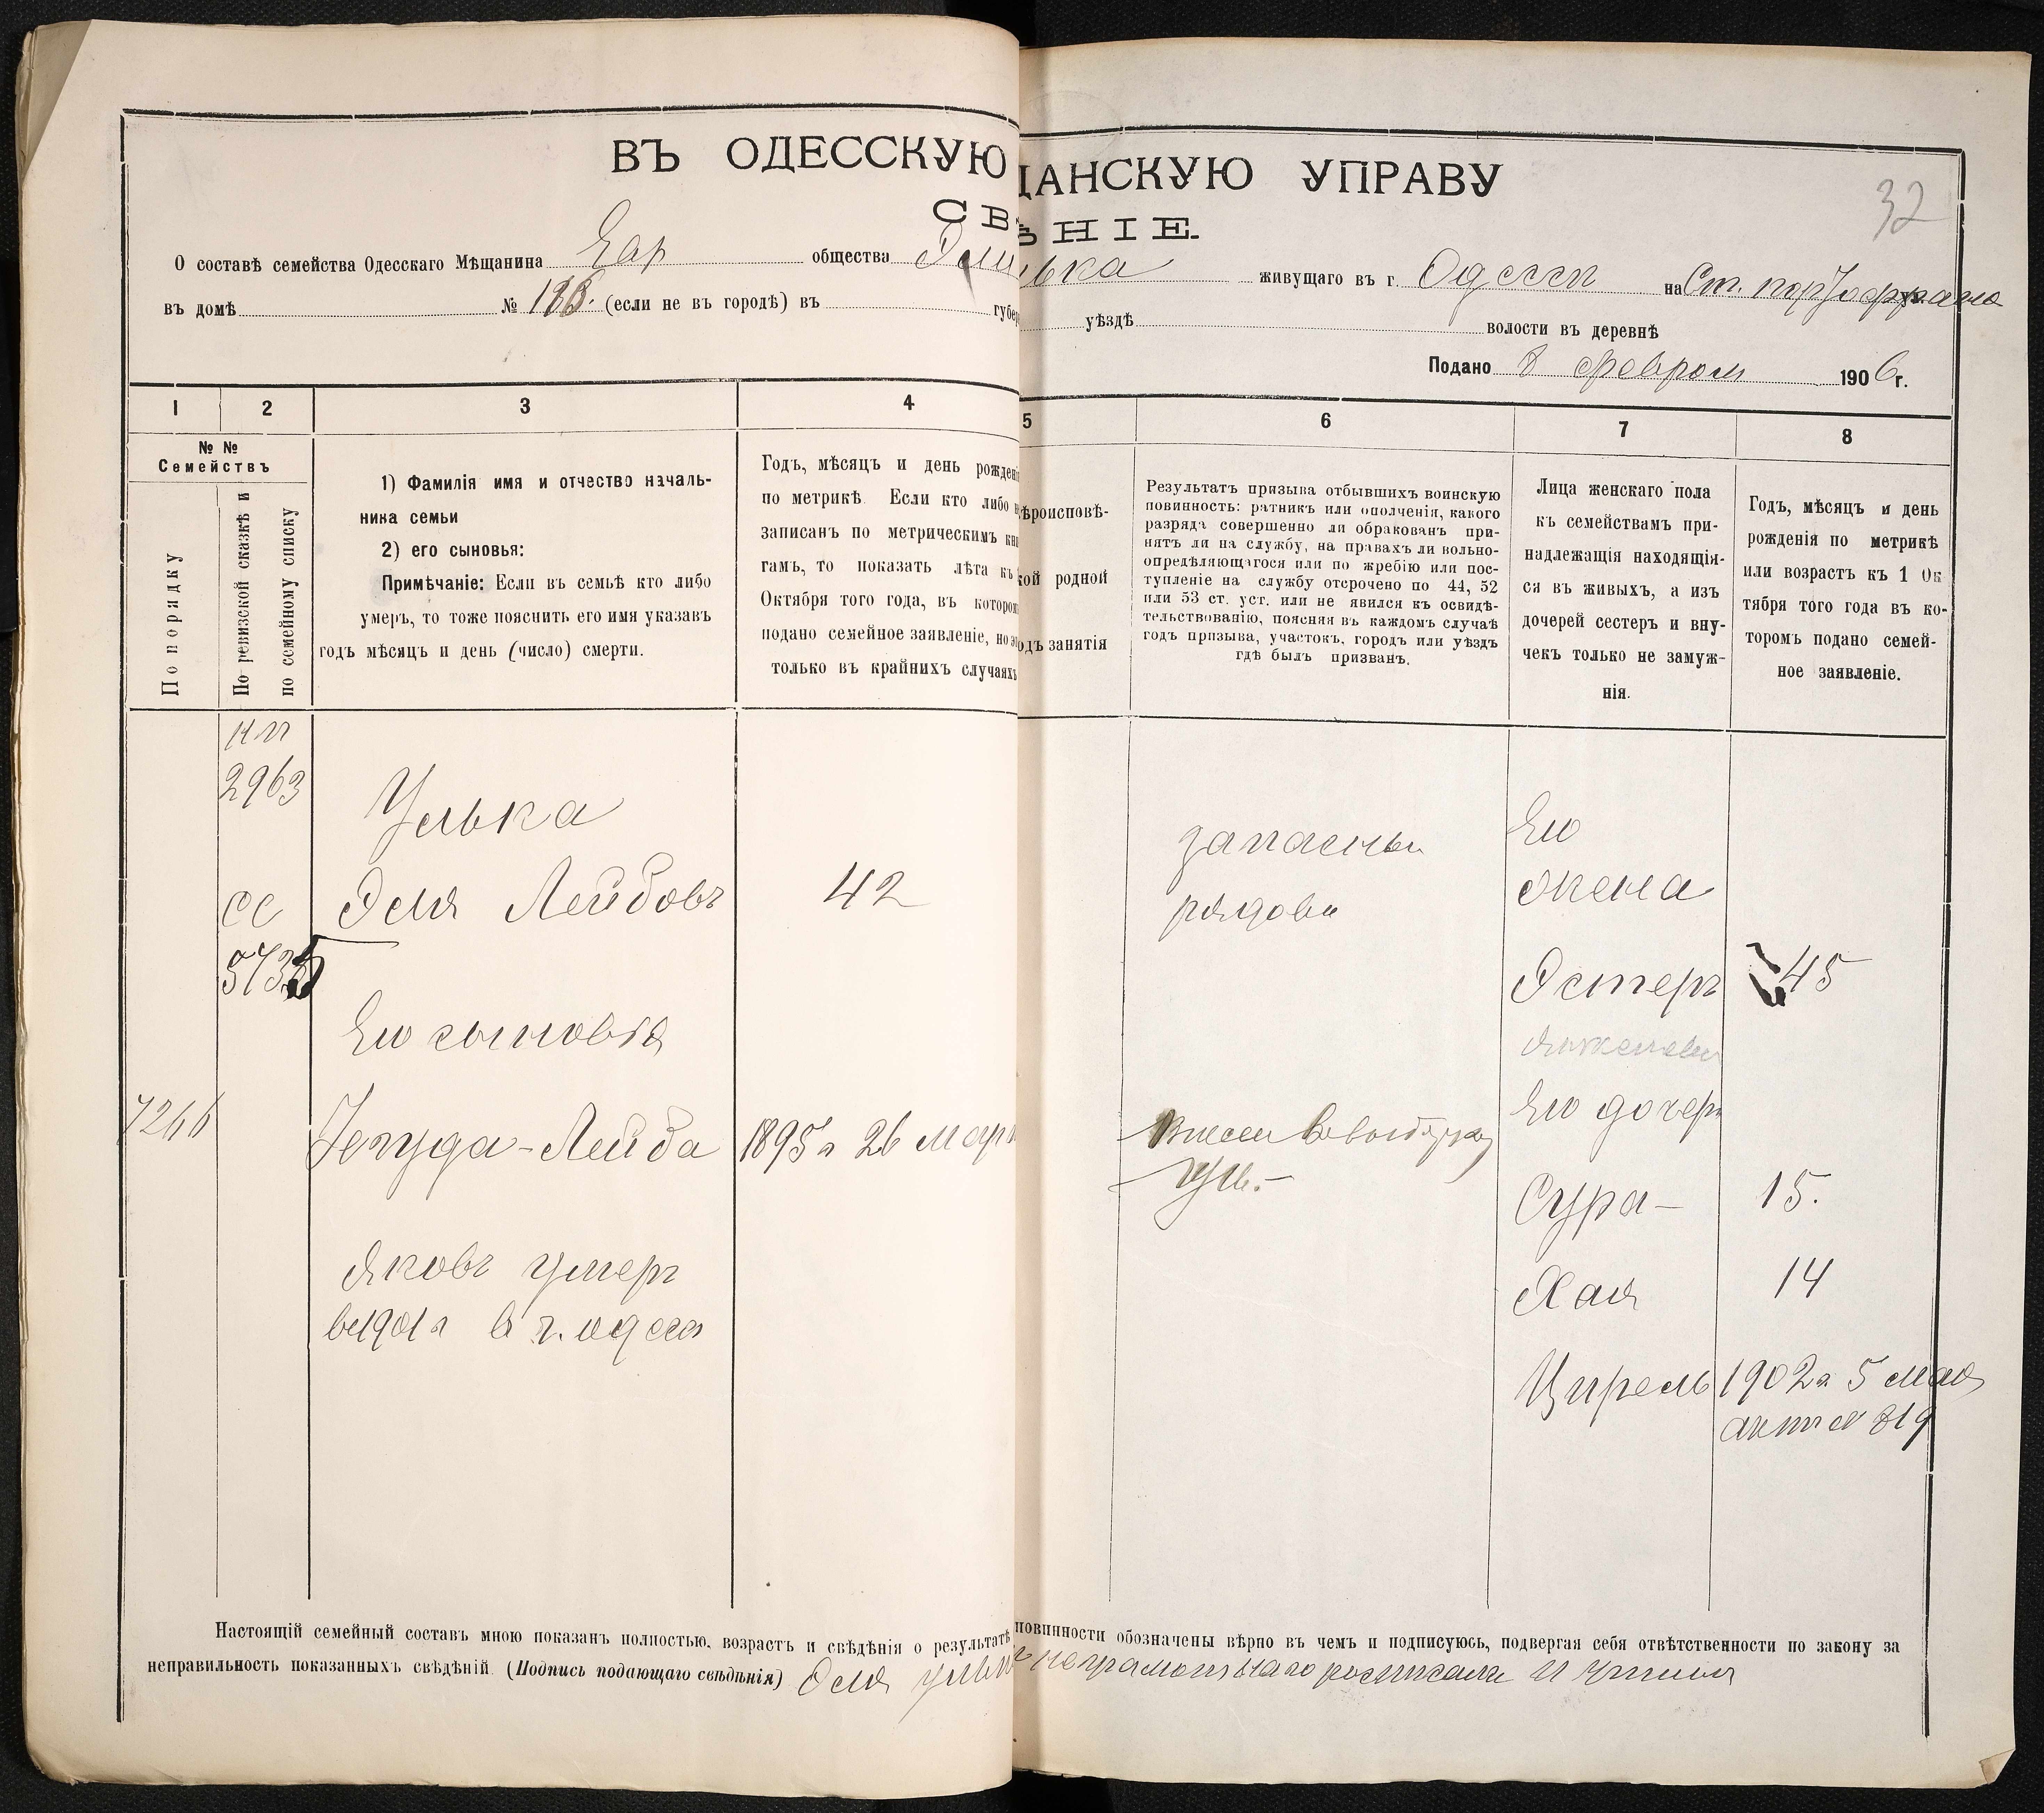 ВЪ ОДЕССКУЮ ЩАНСКУЮ УПРАВУ
СВ ѢНІЕ.
32
О составѣ семейства Одесскаго Мѣщанина Евр общества живущаго въ г. Одессы на Ст. порто франко
въ домѣ № (если не въ городѣ) въ губер уѣздѣ волости въ деревнѣ
Подано 8 феврал 1906 г.
1 2 3 4 5 6 7 8
№ №
Семействъ
По порядку
По ревизской сказкѣ и
по семейному списку
1) Фамилія имя и отчество началь-
ника семьи
2) его сыновья:
Примѣчаніе: Если въ семьѣ кто либо
умеръ, то тоже пояснить его имя указавъ
годъ мѣсяцъ и день (число) смерти.
Годъ, мѣсяцъ и день рожденія
по метрикѣ. Если кто либо не
записанъ по метрическимъ кни
гамъ, то показать лѣта къ
Октября того года, въ которомъ
подано семейное заявленіе, но это
только въ крайнихъ случаяхъ
ѣроисповѣ-
кой родной
одъ занятія
Результатъ призыва отбывшихъ воинскую
повинность: ратникъ или ополченія, какого
разряда совершенно ли обракованъ при-
нятъ ли на службу, на правахъ ли вольно-
опредѣляющагося или по жребію или пос-
тупленіе на службу отсрочено по 44, 52
или 53 ст. уст. или не явился къ освидѣ-
тельствованію, поясняя въ каждомъ случаѣ
годъ призыва, участокъ, городъ или уѣздъ
гдѣ былъ призванъ.
Лица женскаго пола
къ семействамъ при-
надлежащія находящія-
ся въ живыхъ, а изъ
дочерей сестеръ и вну-
чекъ только не замуж-
нія.
Годъ, мѣсяцъ и день
рожденія по метрикѣ
или возрастъ къ 1 Ок
тября того года въ ко-
торомъ подано семей-
ное заявленіе.
2963
Улька
Эля Лейбовъ
42
запасный
рядовы
Его
жена
СС
5735
Эстеръ
45
Его сыновья
Его дочеръ
7266
Іегуда-Лейба
1895 г 26 март
Сура-
15.
Яковъ умеръ
в 1901 г в г. одесса
Хая
14
Ципрель
1902 г. 5 мая
актъ № 819
Настоящій семейный составъ мною показанъ полностью, возрастъ и свѣдѣнія о результатѣ повинности обозначены вѣрно въ чемъ и подписуюсь, подвергая себя отвѣтственности по закону за
неправильность показанныхъ свѣдѣній. (Подпись подающаго свѣдѣнія) Эля Улька неграмотнаго росписалъ